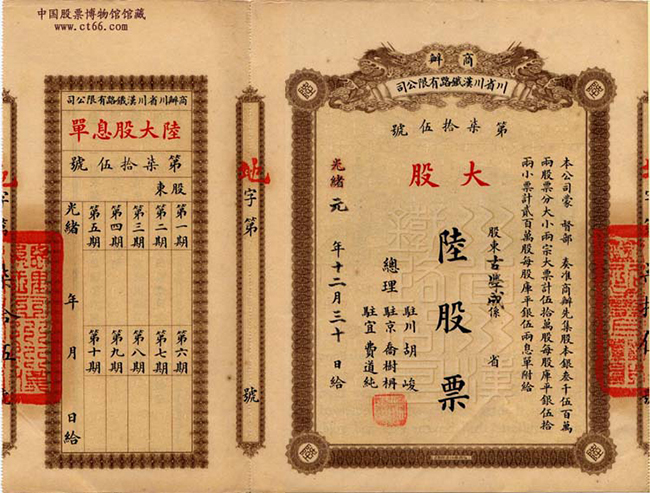 中国股票博物馆馆藏
www.ct66.com
商辦
川省川漢鐵路有限公司
第柒拾伍號
大股
本公司蒙 督部 奏准商辦先集股本銀叁千伍百萬
兩股票分大小兩宗大票計伍拾萬股每股庫平銀伍拾
兩小票計貳百萬股每股庫平銀伍兩息單附給
股東古學成係 省
陸股票
總理
駐川胡峻
駐京喬樹枬
駐宜費道純
光緒元年十二月三十日給
地字第 號
商辦川省川漢鐵路有限公司
陸大股息單
第柒拾伍號
股東
第一期 第六期
第二期 第七期
第三期 第八期
第四期 第九期
第五期 第十期
光緒 年 月 日給